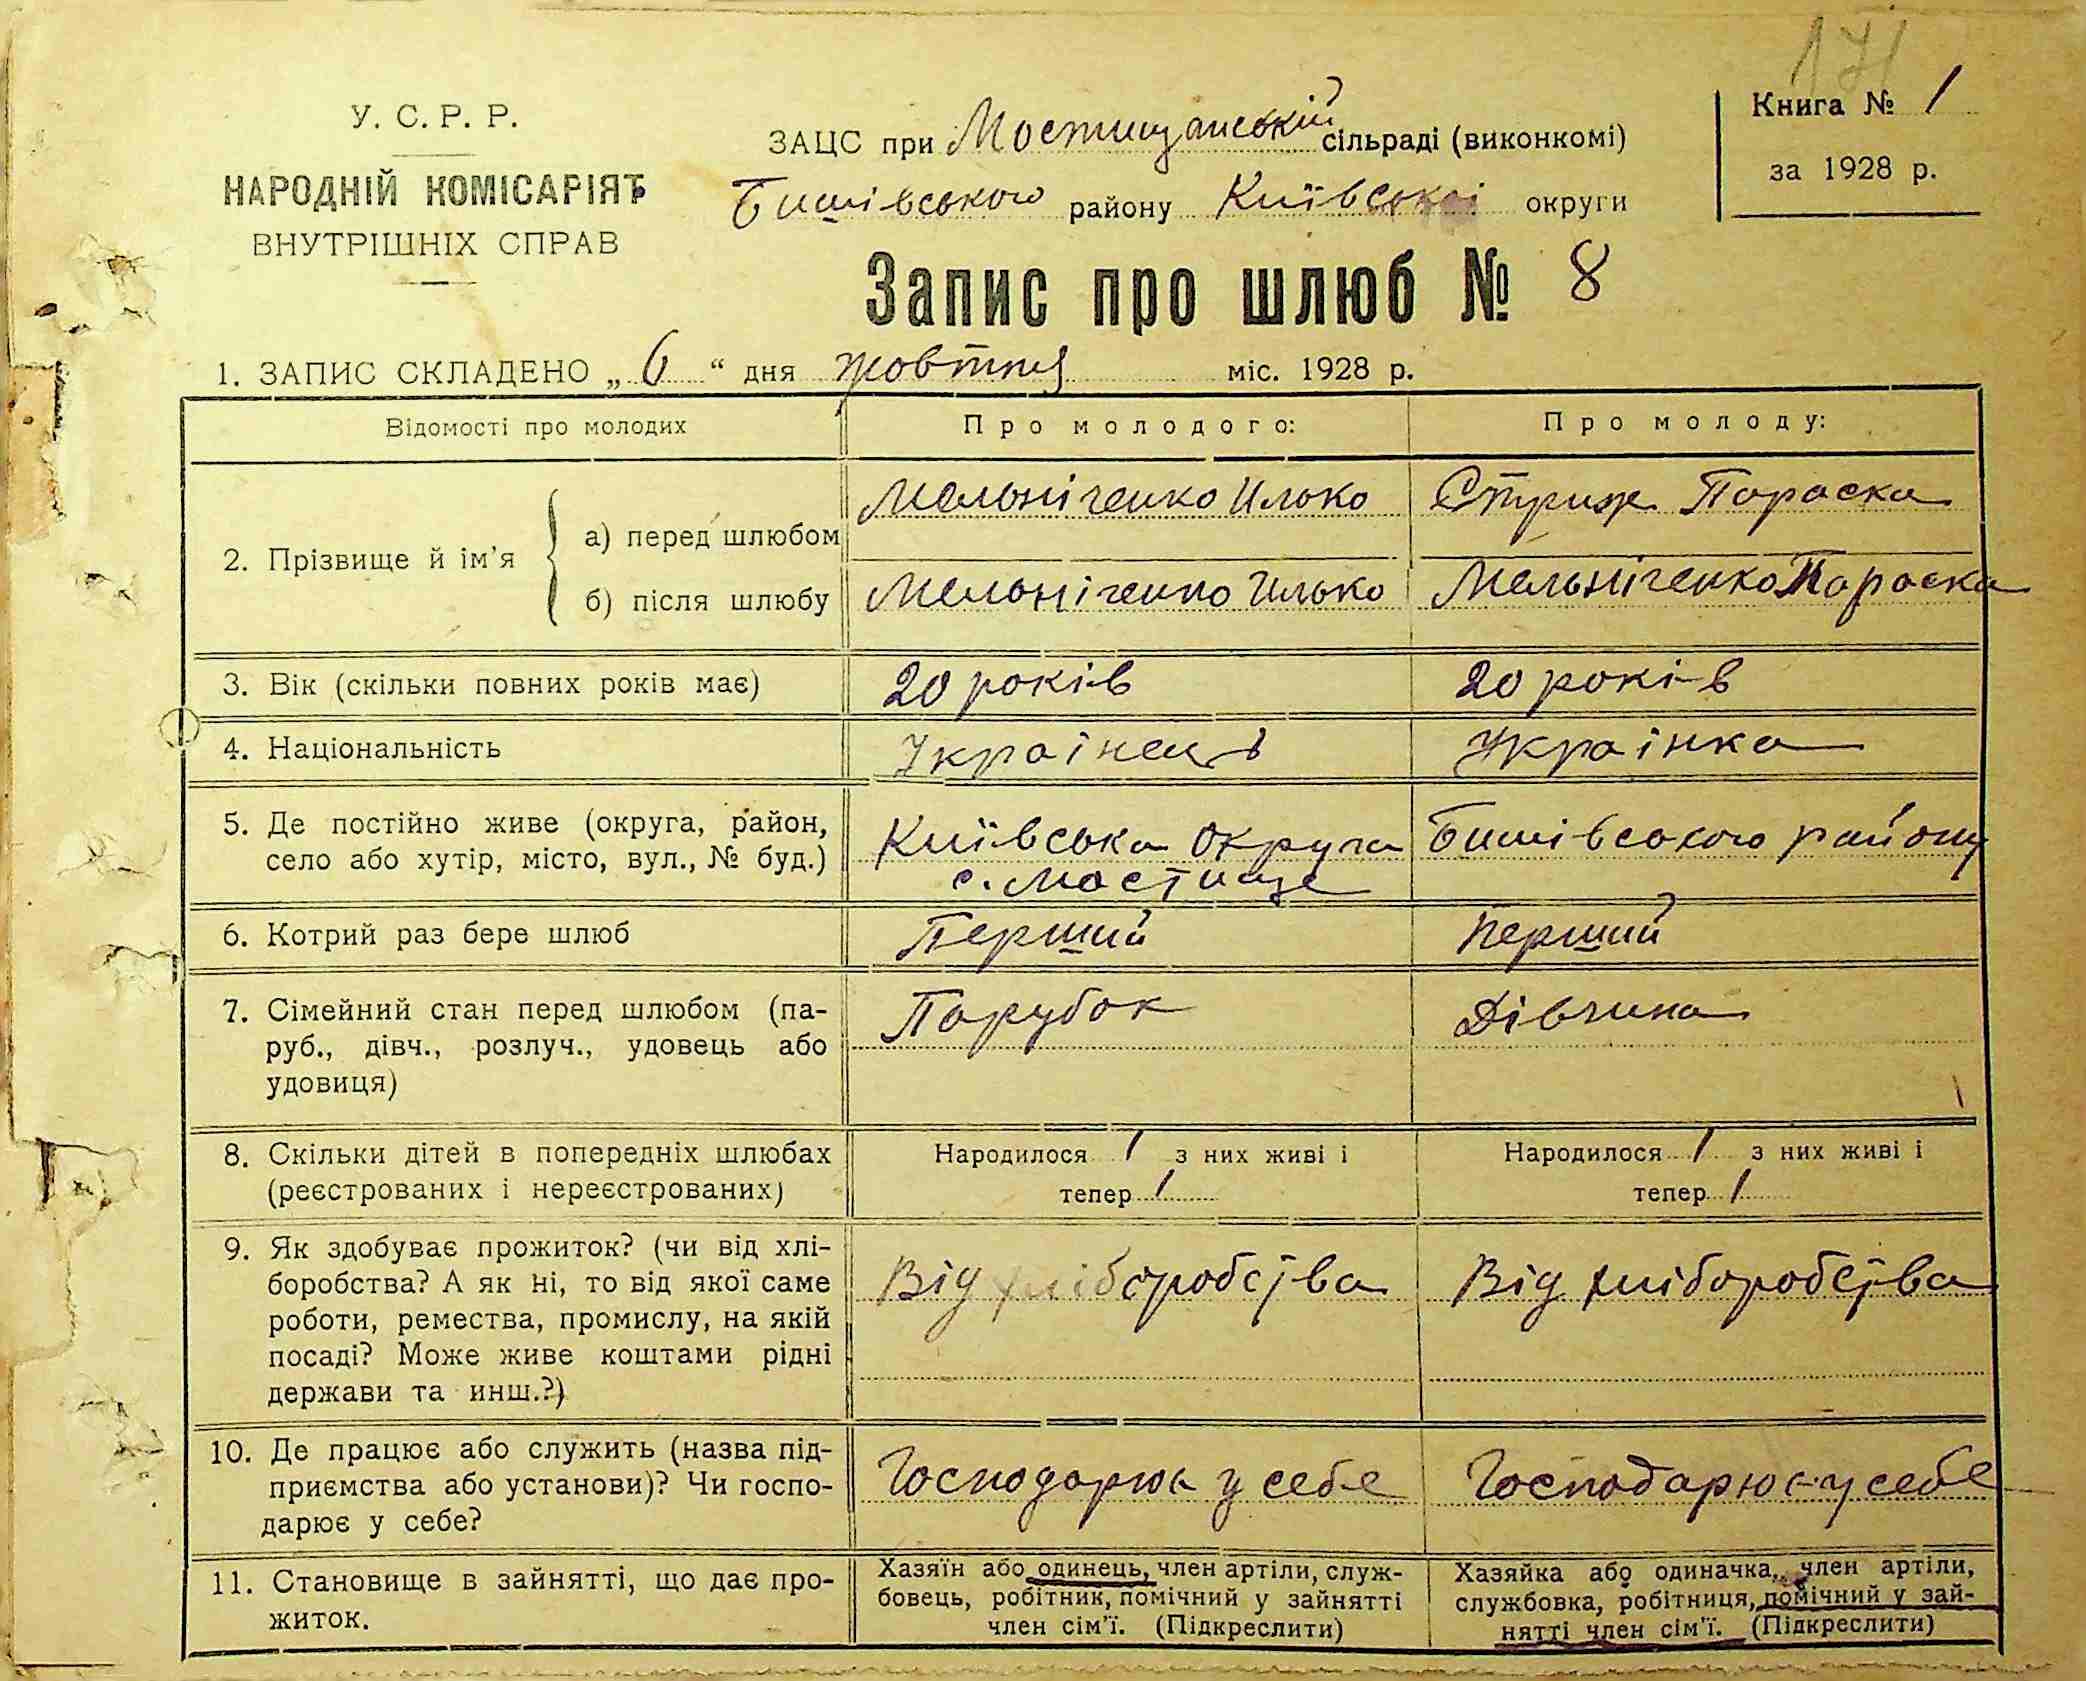 171
У. С. Р. Р.
НАРОДНІЙ КОМІСАРІЯТ
ВНУТРІШНІХ СПРАВ
ЗАЦС при Мостищанській сільраді (виконкомі)
Бишівського району Київської округи
Книга № 1
за 1928 р.
Запис про шлюб № 8
1. ЗАПИС СКЛАДЕНО „ 6 “ дня жовтня міс. 1928 р.
Відомості про молодих
Про молодого:
Про молоду:
2. Прізвище й ім'я
а) перед шлюбом
Мельніченко Илько
Стриж Параска
б) після шлюбу
Мельніченко Илько
Мельніченко Параска
3. Вік (скільки повних років має)
20 років
20 років
4. Національність
Украінець
Украінка
5. Де постійно живе (округа, район,
село або хутір, місто, вул., № буд.)
Київська округа Бишівського району
с. Мостище
6. Котрий раз бере шлюб
Перший
Перший
7. Сімейний стан перед шлюбом (па-
руб., дівч., розлуч., удовець або
удовиця)
Парубок
Дівчина
8. Скільки дітей в попередніх шлюбах
(реєстрованих і нереєстрованих)
Народилося / з них живі і
тепер /
Народилося / з них живі і
тепер /
9. Як здобуває прожиток? (чи від хлі-
боробства? А як ні, то від якої саме
роботи, ремества, промислу, на якій
посаді? Може живе коштами рідні
держави та инш.?)
Від хліборобства
Від хліборобства
10. Де працює або служить (назва під-
приємства або установи)? Чи госпо-
дарює у себе?
Господарює у себе
Господарює у себе
11. Становище в зайнятті, що дає про-
житок.
Хазяїн або одинець, член артіли, служ-
бовець, робітник, помічний у зайнятті
член сім'ї. (Підкреслити)
Хазяйка або одиначка, член артіли,
службовка, робітниця, помічний у зай-
нятті член сім'ї. (Підкреслити)